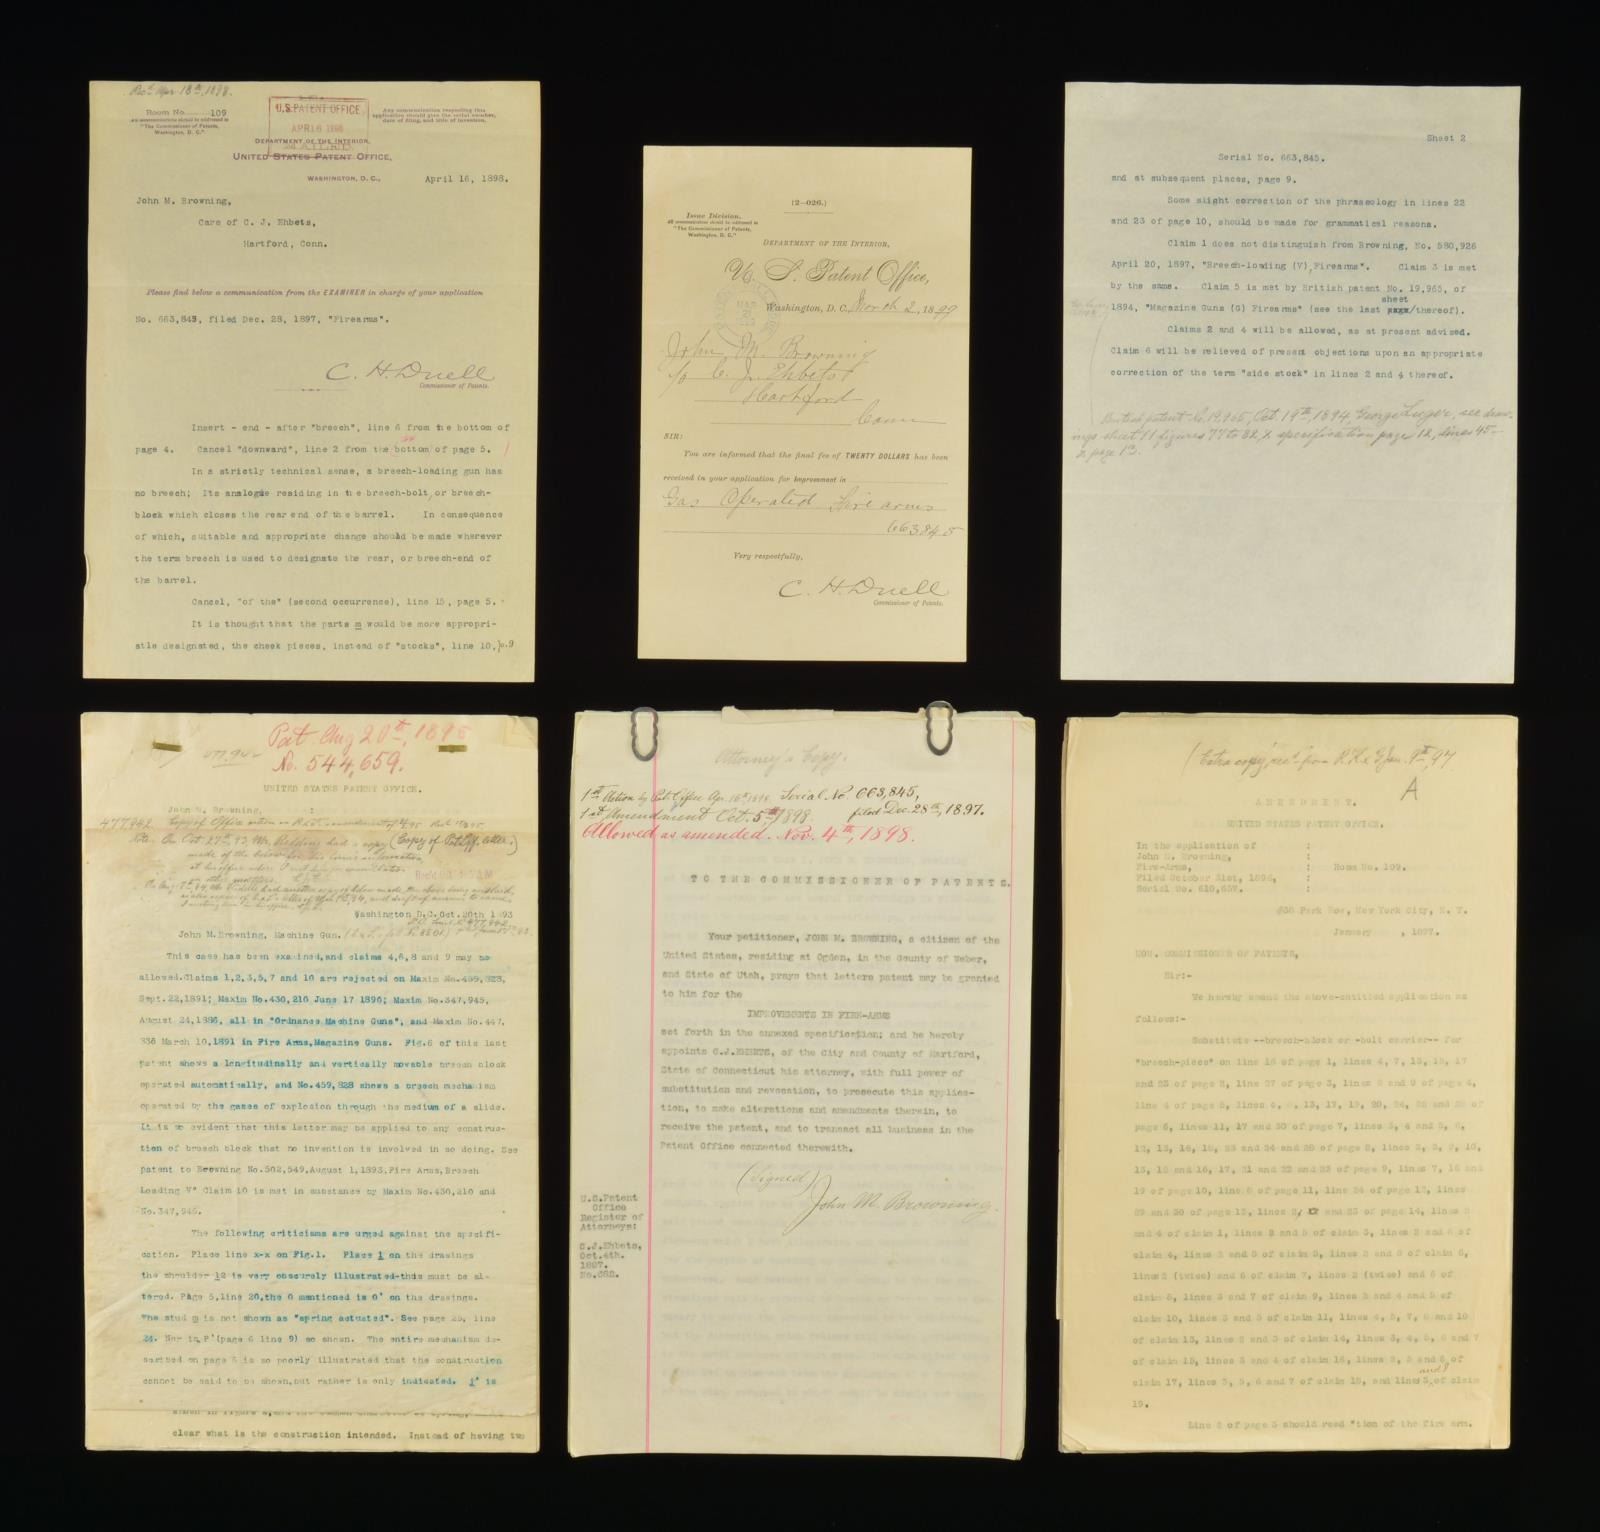 Rec'd Apr 18th, 1898.
Room No. 109
All communications should be addressed to
"The Commissioner of Patents,
Washington, D. C."
U.S. PATENT OFFICE,
APR 16 1898
MAILED.
Any communication respecting this
application should give the serial number,
date of filing, and title of invention.
DEPARTMENT OF THE INTERIOR,
UNITED STATES PATENT OFFICE,
WASHINGTON, D. C., April 16, 1898.
John M. Browning,
Care of C. J. Ehbets,
Hartford, Conn.
Please find below a communication from the EXAMINER in charge of your application
No. 663,845, filed Dec. 28, 1897, "Firearms".
C. H. Duell
Commissioner of Patents.
Insert - end - after "breech", line 6 from the bottom of
page 4. Cancel "downward", line 2 from the bottom of page 5.
In a strictly technical sense, a breech-loading gun has
no breech; Its analogue residing in the breech-bolt, or breech-
block which closes the rear end of the barrel. In consequence
of which, suitable and appropriate change should be made wherever
the term breech is used to designate the rear, or breech-end of
the barrel.
Cancel, "of the" (second occurrence), line 15, page 5.
It is thought that the parts m would be more appropri-
atle designated, the cheek pieces, instead of "stocks", line 10, p.9
(2—026.)
Issue Division.
All communications should be addressed to
"The Commissioner of Patents,
Washington, D. C."
DEPARTMENT OF THE INTERIOR,
U. S. Patent Office,
Washington, D. C. March 2, 1899
John M. Browning
c/o C. J. Ehbets
Hartford
Conn
SIR:
You are informed that the final fee of TWENTY DOLLARS has been
received in your application for Improvement in
Gas Operated Firearms
663845
Very respectfully,
C. H. Duell
Commissioner of Patents.
Sheet 2
Serial No. 663,845.
and at subsequent places, page 9.
Some slight correction of the phraseology in lines 22
and 23 of page 10, should be made for grammatical reasons.
Claim 1 does not distinguish from Browning, No. 580,926
April 20, 1897, "Breech-loading (V), Firearms". Claim 3 is met
by the same. Claim 5 is met by British patent No. 19,965, of
sheet
1894, "Magazine Guns (G) Firearms" (see the last page/thereof).
Claims 2 and 4 will be allowed, as at present advised.
Claim 6 will be relieved of present objections upon an appropriate
correction of the term "side stock" in lines 2 and 4 thereof.
British patent No. 19,965, Oct. 19th, 1894, George Luger, see draw-
ings sheet 11 figures 77 to 82 & specification page 12, lines 45-
& page 13.
Pat. Aug 20th, 1895
No. 544,659.
UNITED STATES PATENT OFFICE.
John M. Browning, :
477942
Note. On Oct. 27th, 93, Mr. Redding had a copy (Copy of Pat. Off. letter.)
made of the below for his
at his office
Washington D.C.Oct.20th 1893
John M.Browning, Machine Gun.
This case has been examined,and claims 4,6,8 and 9 may be
allowed.Claims 1,2,3,5,7 and 10 are rejected on Maxim No.459,828,
Sept.22,1891; Maxim No.430,210 June 17 1890; Maxim No.347,945,
August 24,1886, all in "Ordnance Machine Guns", and Maxim No.447,
836 March 10,1891 in Fire Arms,Magazine Guns. Fig.6 of this last
patent shows a longitudinally and vertically movable breech block
operated automatically, and No.459,828 shows a breech mechanism
operated by the gases of explosion through the medium of a slide.
It is so evident that this latter may be applied to any construc-
tion of breech block that no invention is involved in so doing. See
patent to Browning No.502,549,August 1,1893,Fire Arms,Breech
Loading V" Claim 10 is met in substance by Maxim No.430,210 and
No.347,945.
The following criticisms are urged against the specifi-
cation. Place line x-x on Fig.1. Place l on the drawings
the shoulder 12 is very obscurely illustrated-this must be al-
tered. Page 5,line 20,the O mentioned is O' on the drawings.
The stud m is not shown as "spring actuated". See page 25, line
24. Nor is P'(page 6 line 9) so shown. The entire mechanism de-
scribed on page 6 is so poorly illustrated that the construction
cannot be said to be shown,but rather is only indicated. j' is
clear what is the construction intended. Instead of having two
Attorney's Copy.
1st Action by Pat. Office Apr. 16th, 1898. Serial No. 663,845,
1st Amendment Oct. 5th, 1898. filed Dec. 28th, 1897.
Allowed as amended. Nov. 4th, 1898.
TO THE COMMISSIONER OF PATENTS.
Your petitioner, JOHN M. BROWNING, a citizen of the
United States, residing at Ogden, in the County of Weber,
and State of Utah, prays that letters patent may be granted
to him for the
IMPROVEMENTS IN FIRE-ARMS
set forth in the annexed specification; and he hereby
appoints C.J.EHBETS, of the City and County of Hartford,
State of Connecticut his attorney, with full power of
substitution and revocation, to prosecute this applica-
tion, to make alterations and amendments therein, to
receive the patent, and to transact all business in the
Patent Office connected therewith.
(Signed)
John M. Browning.
U.S.Patent
Office
Register of
Attorneys:
C.J.Ehbets,
Oct.4th.
1897.
No.682.
(Extra copy, rec'd from R. K. & Jan. 9th, 97
A
AMENDMENT.
UNITED STATES PATENT OFFICE.
In the application of :
John M. Browning, :
Fire-Arms, : Room No. 109.
Filed October 31st, 1896, :
Serial No. 610,657. :
#38 Park Row, New York City, N. Y.
January , 1897.
HON. COMMISSIONER OF PATENTS,
Sir:-
We hereby amend the above-entitled application as
follows:-
Substitute --breech-block or -bolt carrier-- for
"breech-piece" on line 16 of page 1, lines 4, 7, 13, 15, 17
and 23 of page 2, line 27 of page 3, lines 2 and 9 of page 4,
page 6, lines 11, 17 and 30 of page 7, lines 3, 4 and 5, 6,
19 of page 10, line 8 of page 11, line 24 of page 12, lines
and 4 of claim 1, lines 2 and 5 of claim 3, lines 2 and 6 of
claim 4, lines 3 and 5 of claim 5, lines 2 and 6 of claim 6,
lines 2 (twice) and 6 of claim 7, lines 2 (twice) and 6 of
claim 8, lines 3 and 7 of claim 9, lines 2 and 4 and 5 of
claim 10, lines 3 and 5 of claim 11, lines 4, 5, 7, 8 and 10
of claim 13, lines 2 and 3 of claim 14, lines 3, 4, 5, 6 and 7
of claim 15, lines 3 and 4 of claim 16, lines 2, 5 and 6 of
and 9
claim 17, lines 3, 5, 6 and 7 of claim 18, and lines 3, of claim
19.
Line 2 of page 3 should read "tion of the fire arm.